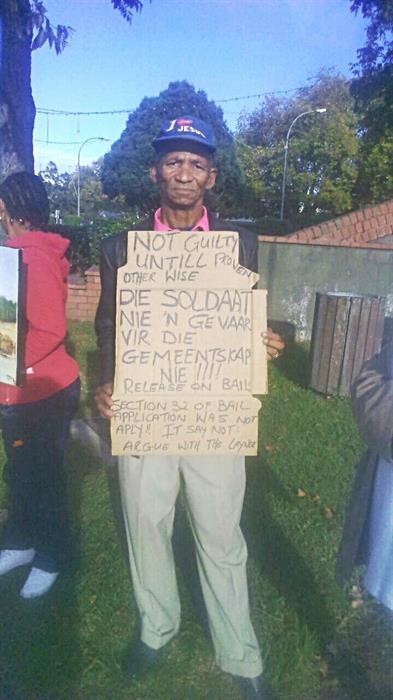 J JESUS
NOT GUILTY
UNTILL PROVEN
OTHER WISE
DIE SOLDAAT
NIE 'N GEVAAR
VIR DIE
GEMEENTSKAP
NIE !!!!
RELEASE ON BAIL
SECTION 32 OF BAIL
APPLICATION WAS NOT
APLY!! IT SAY NOT:
ARGUE WITH THE